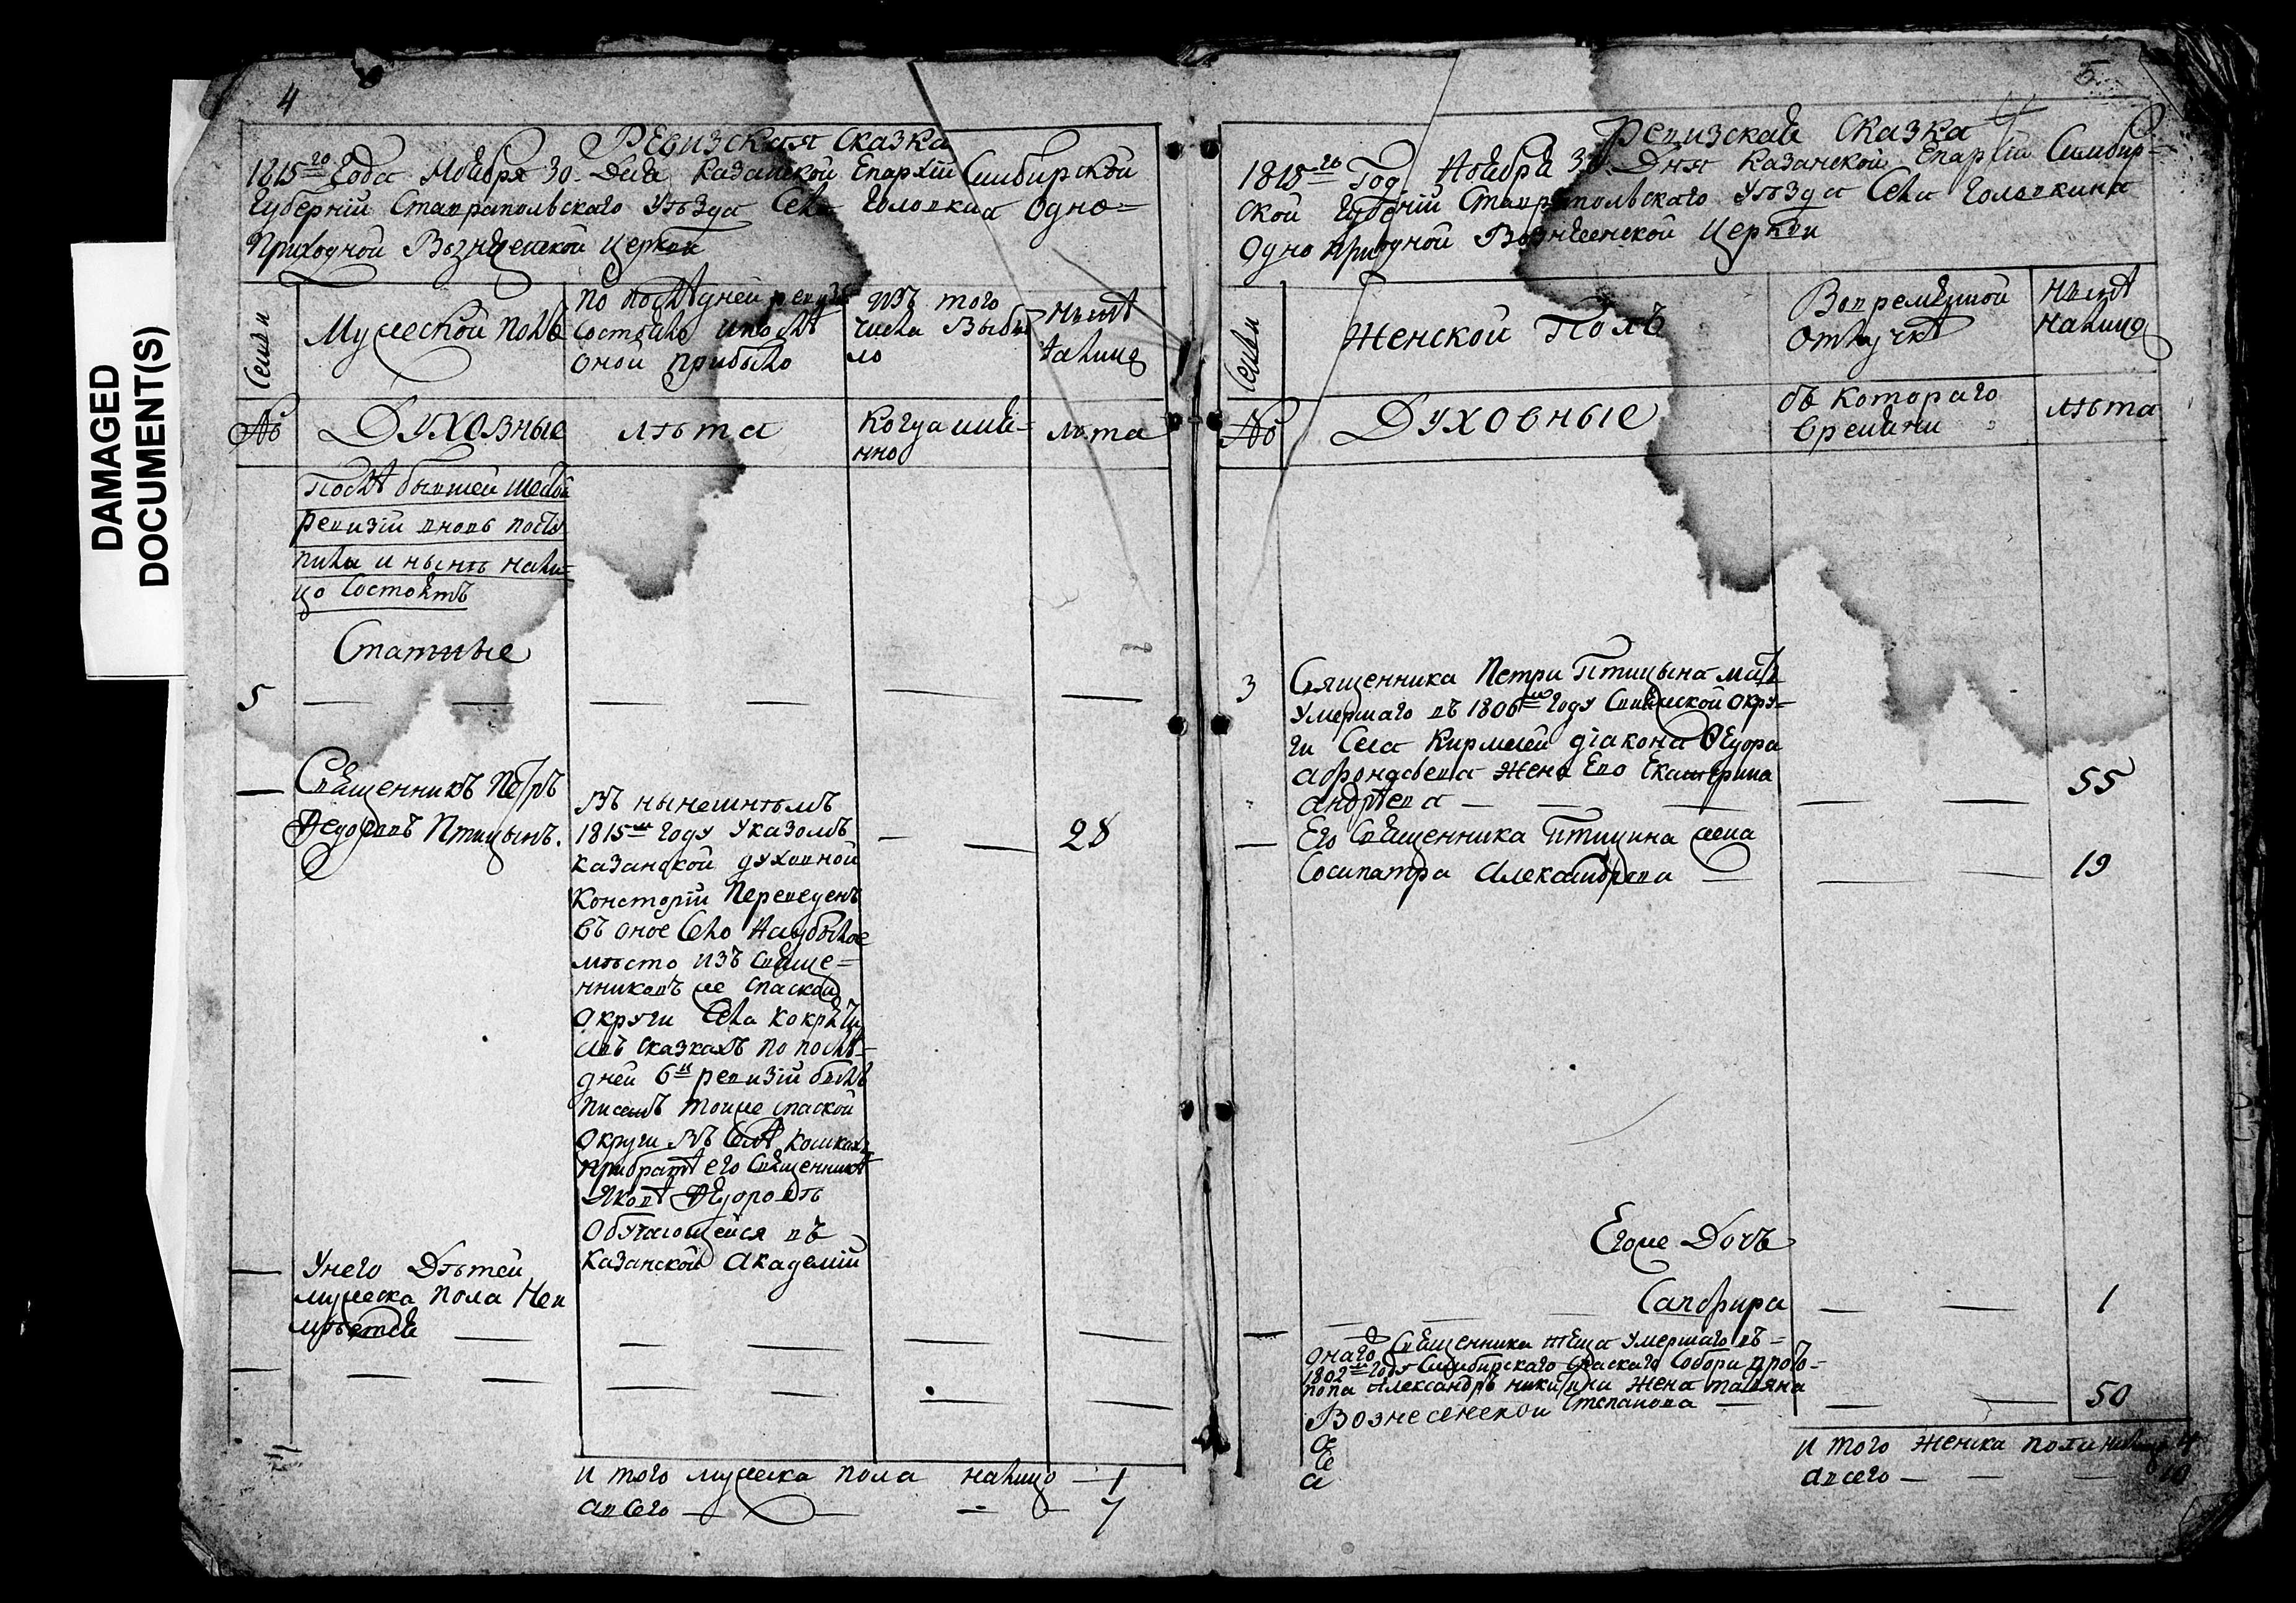 DAMAGED
DOCUMENT(S)
4
Ревизская сказка
1815го Года Ноября 30. Дня Казанской Епархїи Симбирской
Губернїи Ставрапольскаго Уѣзда Села Головкина Одно=
приходной Вознесенской Церкви
Семьи
Мужеской полъ
по послѣдней ревизїи
состояло и послѣ
оной прибыло
изъ того
числа выбы
ло
Нынѣ
налицо
№
Духовные
лѣта
Когда имя-
нно
лѣта
Послѣ бывшей шестой
ревизїи вновь посту
пила и нынѣ нали=
цо состоятъ
Статные
5
Священникъ Петръ
Федоровъ Птицынъ.
28
въ нынешнѣмъ
1815м году указомъ
казанской духовной
Консторїи переведенъ
въ оное село на убылое
мѣсто изъ Свяще=
нниковъ же спаской
округи села Кокрѣти
а въ сказкахъ по послѣ-
дней 6й ревизїи былъ
писанъ тоиже спаской
округи въ селѣ кошках
при братѣ его Священникѣ
Яковѣ Федоровѣ
обучающейся въ
казанской академїи
Унего Дѣтей
мужеска пола Неи
мѣется
и того мужеска пола налицо — 1
а всего — 7
5
Ревизская Сказка
1815го Год Ноября 30. Дня Казанской Епархїи Симбир=
ской Губернїи Ставропольскаго Уѣзда Села Головкина
Одно приходной Вознесенской Церкви
Семьи
Женской Полъ
Вовремянной
отлучкѣ
Нынѣ
налицо
№
Духовные
съ котораго
времяни
лѣта
3
Священника Петра Птицына мать
умершаго въ 1806м году Свияжской окру=
ги Села Кирмелей дїакона Федора
афонасьева жена Ево Екатерина
андрѣева —
55
Его Священника Птицина жена
Сосипатра Александрова
19
Егоже Дочь
Сапфира
1
Онаго Священника теща умершаго въ=
1802м году Симбирскаго Спаскаго Собора прото=
попа Александра никитина жена татьяна
Вознесенской Степанова —
50
а
е
а
и того женска пола налицо 4
а всего — 10